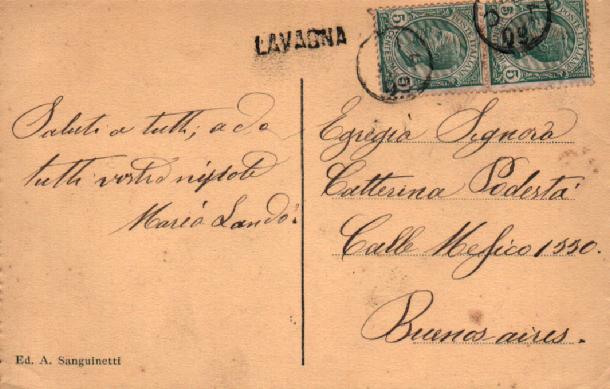 LAVAGNA
Saluti a tutti, a da
tutti vostro nipote
Maria Landó
Egregia Signora
Catterina Podestá
Calle Messico 1550.
Buenos aires.
Ed. A. Sanguinetti
5
5
POSTE ITALIANE
09